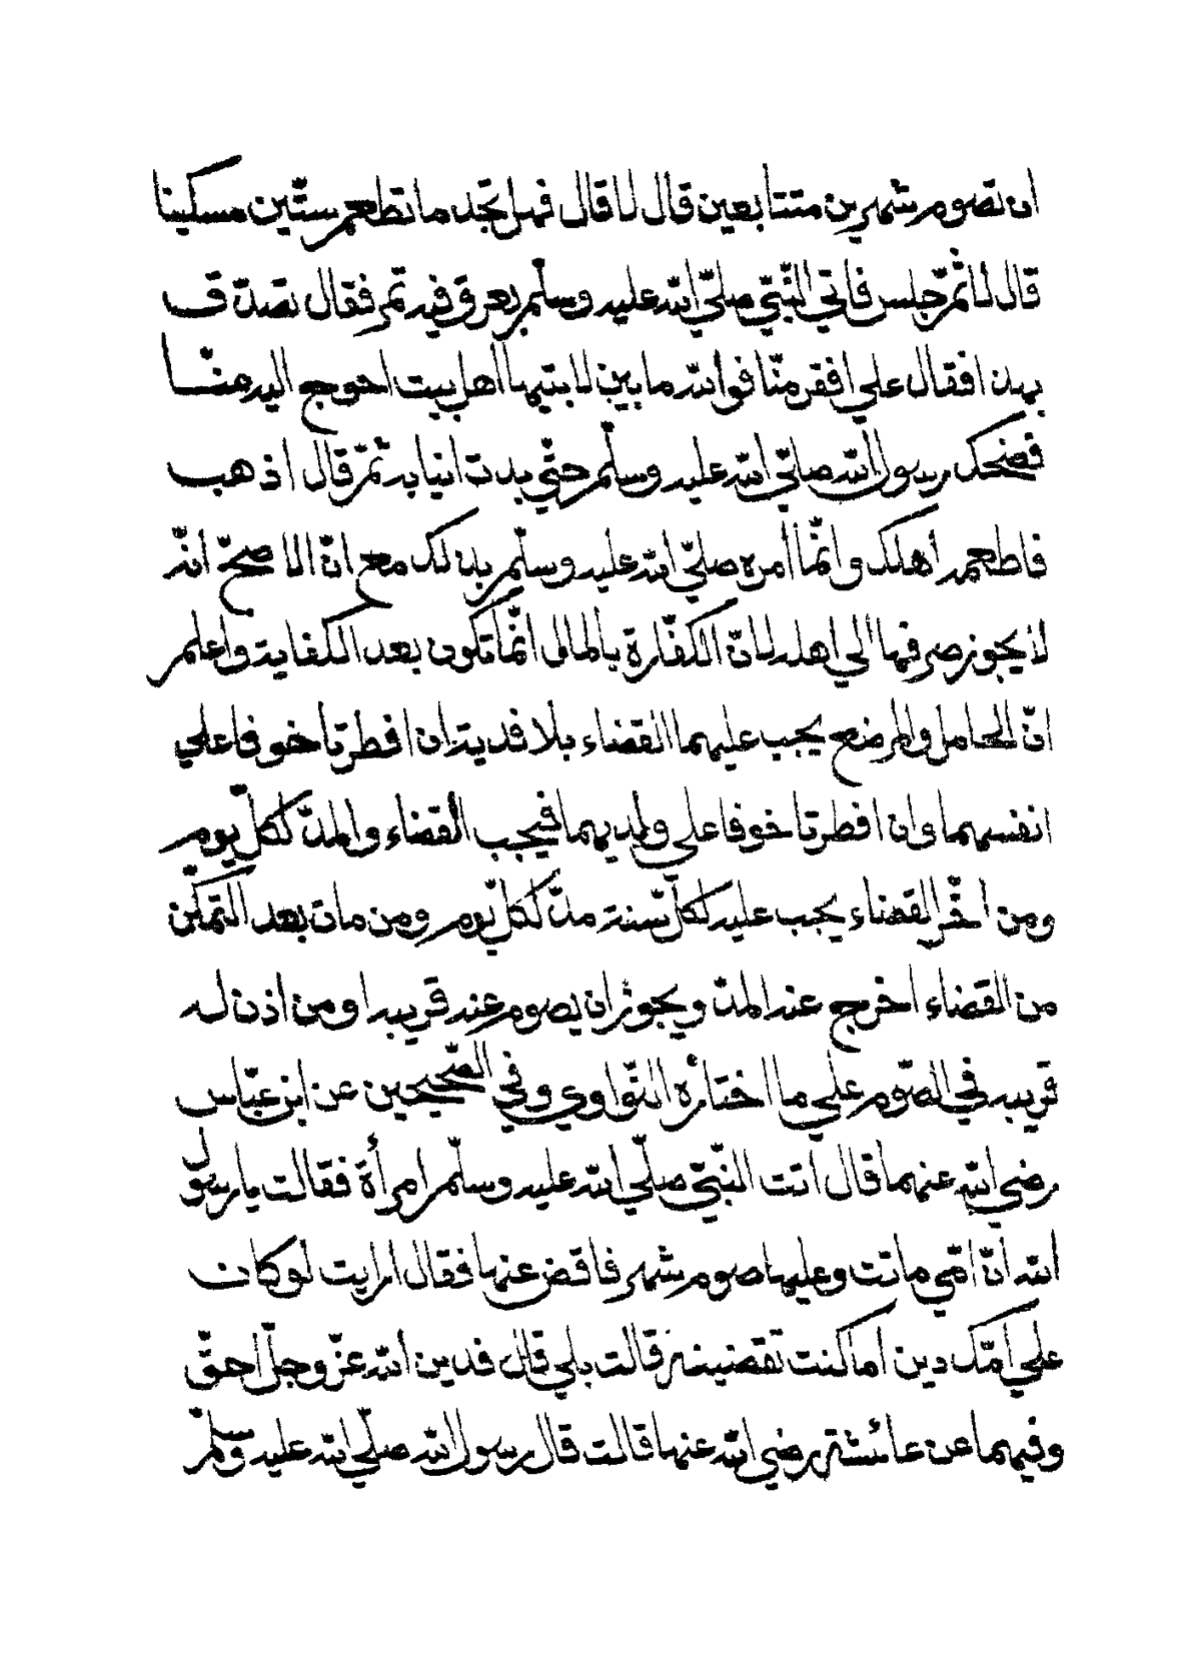 ان تصوم شهرين متتابعين قال لا قال فهل تجد ما تطعم ستّين مسكينا
قال لا ثمّ جلس فاتي النّبيّ صلّي الله عليه وسلّم بعرق فيه تمر فقال تصدّق ف
بهذا فقال علي افقر منّا فوالله ما بين لابتيها اهل بيت احوج اليه منّا
فضحك رسول الله صلّي الله عليه وسلّم حتّي بدت انيابه ثمّ قال اذهب
فاطعمه أهلك وانّما أمره صلّي الله عليه وسلّم بذلك مع انّ الاصحّ انّه
لا يجوز صرفها الي اهله لانّ الكفّارة بالمال انّما تكون بعد الكفاية واعلم
انّ الحامل والمرضع يجب عليهما القضاء بلا فدية ان افطرتا خوفا علي
انفسهما وان افطرتا خوفا علي ولديهما فيجب القضاء والمدّ لكلّ يوم
ومن أخّر القضاء يجب عليه لكلّ سنة مدّ لكلّ يوم ومن مات بعد التّمكّن
من القضاء اخرج عنه المدّ ويجوز ان يصوم عنه قريبه او من اذن له
قريبه في الصّوم علي ما اختاره النّواوي وفي الصّحيحين عن ابن عبّاس
رضي الله عنهما قال اتت النّبيّ صلّي الله عليه وسلّم امرأة فقالت يا رسول
الله انّ امّي ماتت وعليها صوم شهر فاقض عنها فقال ارايت لو كان
علي امّك دين اما كنت تقضينه قالت بلي قال فدين الله عزّ وجلّ احقّ
وفيهما عن عائشة رضي الله عنها قالت قال رسول الله صلّي الله عليه وسلّم